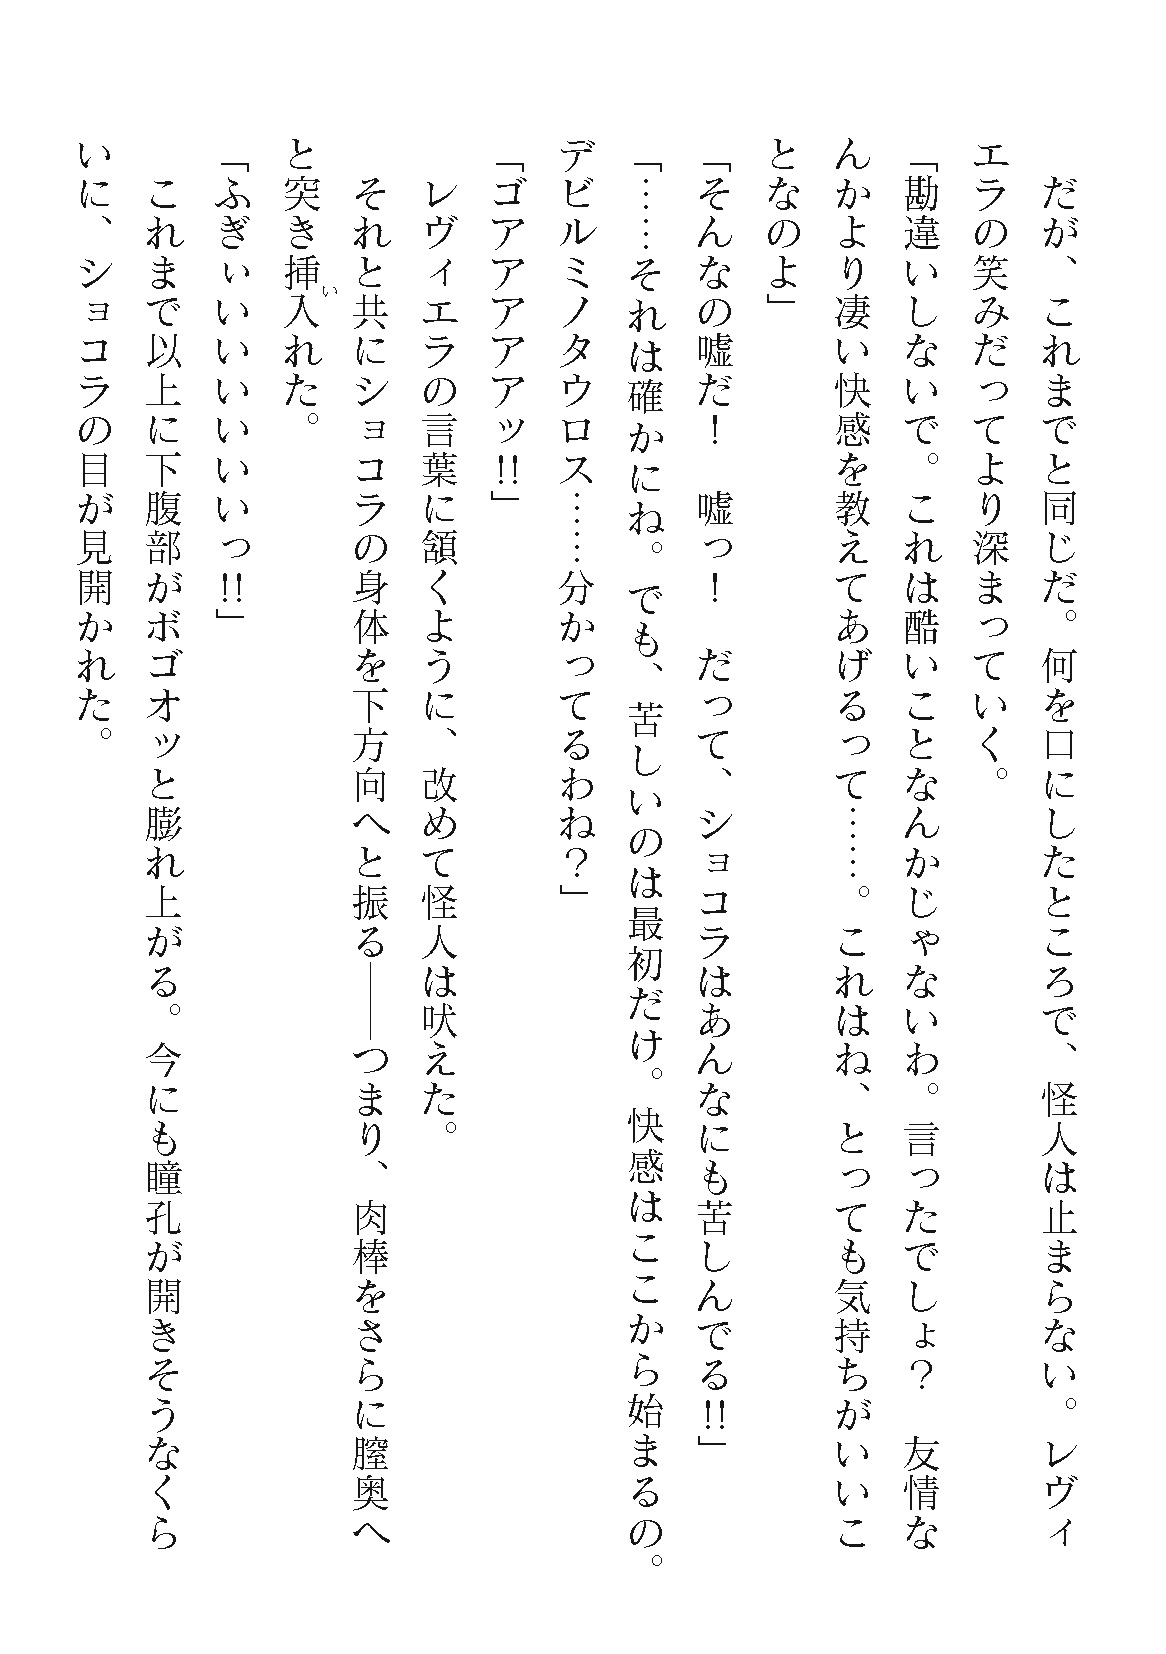 だが、これまでと同じだ。何を口にしたところで、怪人は止まらない。レヴィ
エラの笑みだってより深まっていく。
「勘違いしないで。これは酷いことなんかじゃないわ。言ったでしょ？　友情な
んかより凄い快感を教えてあげるって……。これはね、とっても気持ちがいいこ
となのよ」
「そんなの嘘だ！　嘘っ！　だって、ショコラはあんなにも苦しんでる!!」
「……それは確かにね。でも、苦しいのは最初だけ。快感はここから始まるの。
デビルミノタウロス……分かってるわね？」
「ゴアアアアアッ!!」
レヴィエラの言葉に頷くように、改めて怪人は吠えた。
それと共にショコラの身体を下方向へと振る――つまり、肉棒をさらに膣奥へ
と突き挿入れた。
い
「ふぎぃいいいいいいっ!!」
これまで以上に下腹部がボゴオッと膨れ上がる。今にも瞳孔が開きそうなくら
いに、ショコラの目が見開かれた。